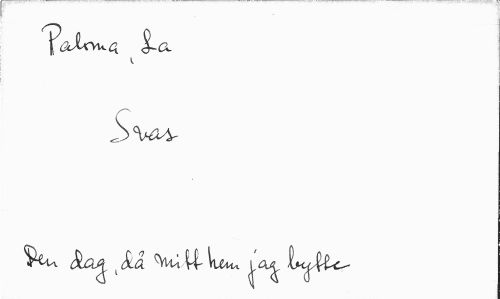 Paloma, La
Svas
Den dag, då mitt hem jag bytte